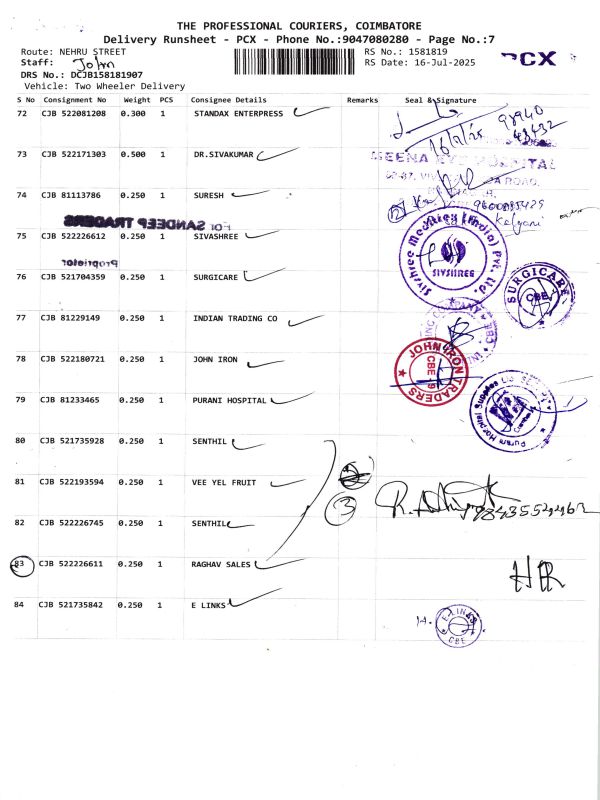 THE PROFESSIONAL COURIERS, COIMBATORE
Delivery Runsheet - PCX - Phone No.:9047080280 - Page No.:7
Route: NEHRU STREET
RS No.: 1581819
PCX
Staff: John
RS Date: 16-Jul-2025
DRS No.: DCJB158181907
Vehicle: Two Wheeler Delivery
S No Consignment No Weight PCS Consignee Details Remarks Seal & Signature
72 CJB 522081208 0.300 1 STANDAX ENTERPRESS
98940
48432
16/7/25
73 CJB 522171303 0.500 1 DR.SIVAKUMAR
MEENA EYE HOSPITAL
ROAD,
74 CJB 81113786 0.250 1 SURESH
9600
Kalyani
For SANDEEP TRADERS
75 CJB 522226612 0.250 1 SIVASHREE
Sivshree Meditex (India) Pvt. Ltd.
SIVSHREE
Proprietor
76 CJB 521704359 0.250 1 SURGICARE
SURGICARE
CBE
77 CJB 81229149 0.250 1 INDIAN TRADING CO
78 CJB 522180721 0.250 1 JOHN IRON
JOHN IRON TRADERS
CBE
79 CJB 81233465 0.250 1 PURANI HOSPITAL
Purani Hospital Supplies
80 CJB 521735928 0.250 1 SENTHIL
81 CJB 522193594 0.250 1 VEE YEL FRUIT
3
82 CJB 522226745 0.250 1 SENTHIL
83 CJB 522226611 0.250 1 RAGHAV SALES
84 CJB 521735842 0.250 1 E LINKS
E LINKS
CBE